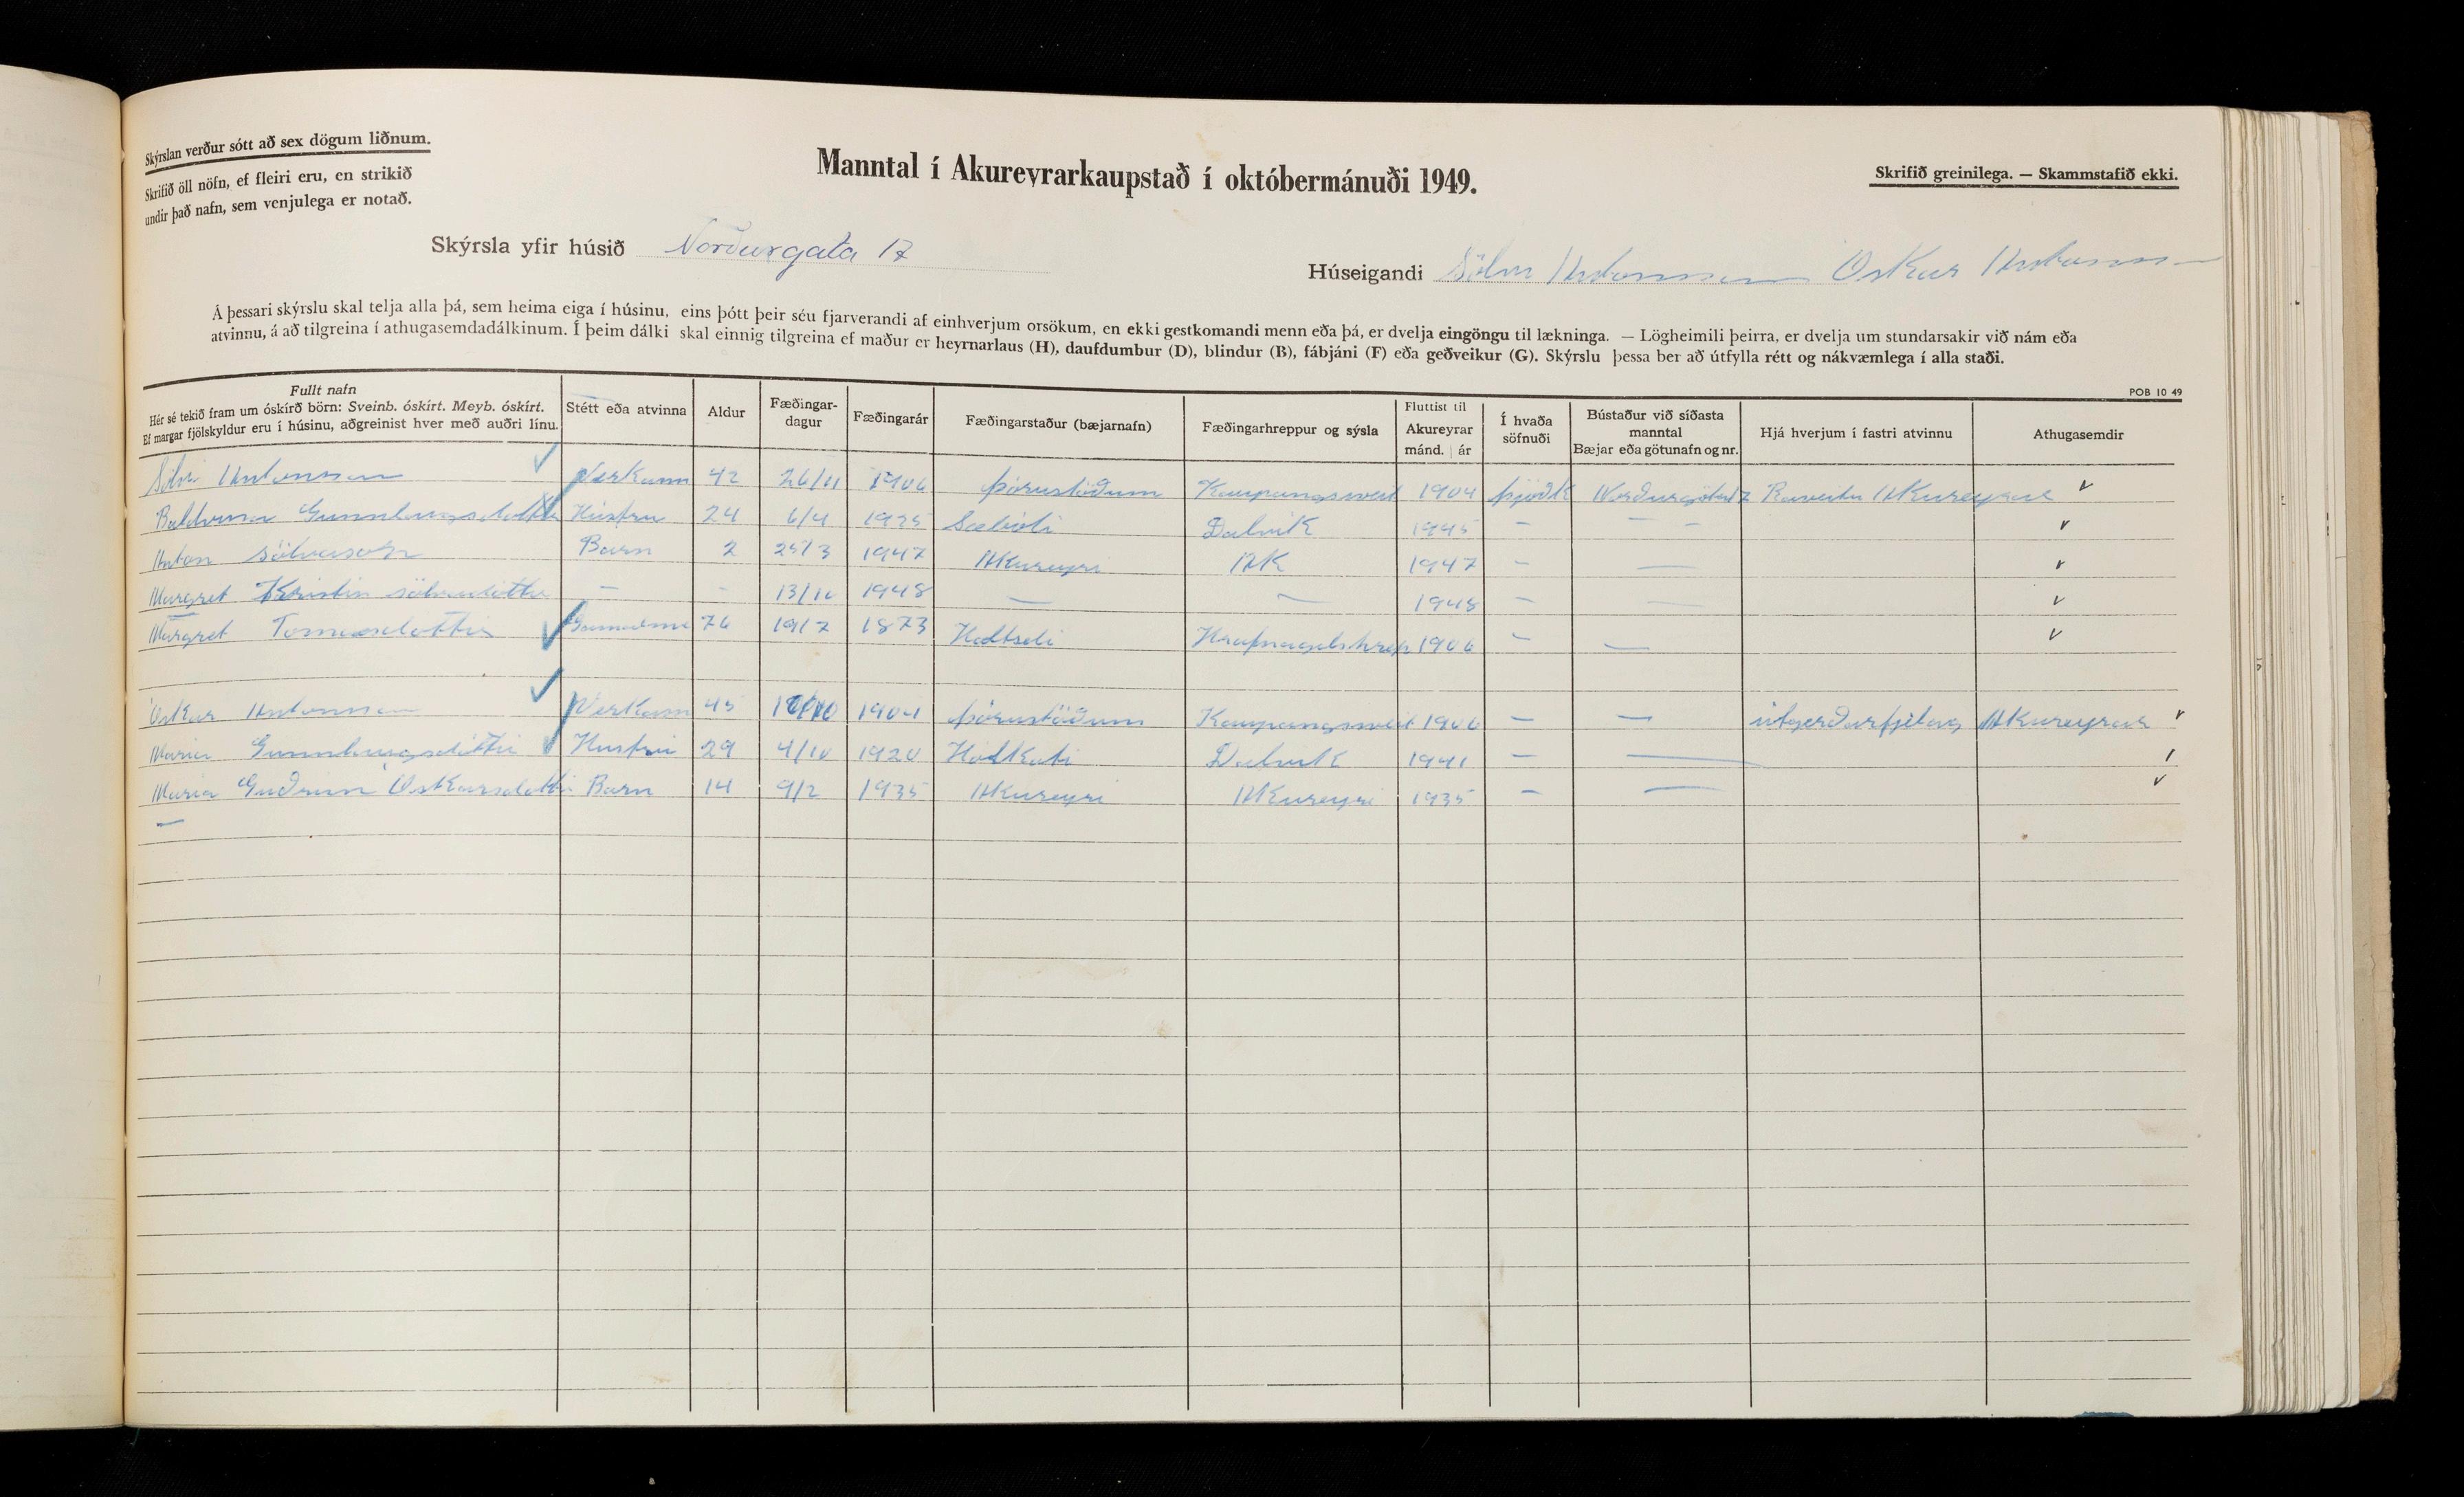 Skýrslan verður sótt að sex dögum liðnum.
Skrifið öll nöfn, ef fleiri eru, en strikið
undir það nafn, sem venjulega er notað.
Manntal í Akureyrarkaupstað í októbermánuði 1949.
Skrifið greinilega. — Skammstafið ekki.
Skýrsla yfir húsið Norðurgata 17
Húseigandi Sölvi Antonsson Oskar Antonsson
Á þessari skýrslu skal telja alla þá, sem heima eiga í húsinu, eins þótt þeir séu fjarverandi af einhverjum orsökum, en ekki gestkomandi menn eða þá, er dvelja eingöngu til lækninga. — Lögheimili þeirra, er dvelja um stundarsakir við nám eða
atvinnu, á að tilgreina í athugasemdadálkinum. Í þeim dálki skal einnig tilgreina ef maður er heyrnarlaus (H), daufdumbur (D), blindur (B), fábjáni (F) eða geðveikur (G). Skýrslu þessa ber að útfylla rétt og nákvæmlega í alla staði.
POB 10 49
Fullt nafn
Hér sé tekið fram um óskírð börn: Sveinb. óskírt. Meyb. óskírt.
Ef margar fjölskyldur eru í húsinu, aðgreinist hver með auðri línu.
Stétt eða atvinna
Aldur
Fæðingar-
dagur
Fæðingarár
Fæðingarstaður (bæjarnafn)
Fæðingarhreppur og sýsla
Fluttist til
Akureyrar
mánd. | ár
Í hvaða
söfnuði
Bústaður við síðasta
manntal
Bæjar eða götunafn og nr.
Hjá hverjum í fastri atvinnu
Athugasemdir
Sölvi Antonsson Verkam 42 26/11 1906 Þórustöðum Kaupangssveit 1904 þjóðk Norðurgötu 17 Rafveitu Akureyrar
Baldvina Gunnlaugsdottir Húsfru 24 6/4 1925 Sæbóli Dalvik 1945 — — —
Anton Sölvason Barn 2 25/3 1947 Akureyri AK 1947 — —
Margret Kristin Sölvadottir — - 13/10 1948 — — 1948 — —
Margret Tomasdottir 76 19/7 1873 Holtseli Hrafnagilshrep 1906 — —
Óskar Antonsson Verkam 45 1904 Þórustöðum Kaupangssveit 1906 — — útgerðarfjélag Akureyrar
Maria Gunnlaugsdóttir Husfrú 29 4/10 1920 Dalvik 1941 — —
Maria Guðrún Oskarsdottir Barn 14 9/2 1935 Akureyri Akureyri 1935 — —